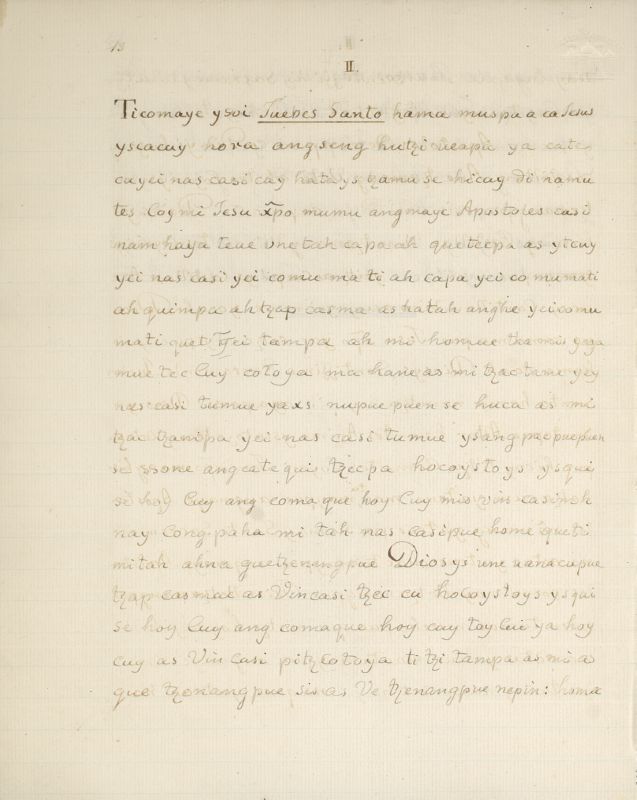 13
II.
Ticomaye ysvi Juebes Santo hama muspa a ca Jesus
yscacuy hora angseng hutzi ueapa ya cate
cuyei nas casi cay hatays tzamu se hicuy di namu
tes Coy mi Jesu Xpo, mumu ang mayi Apostoles casi
nam haya teue vne tah capa ah queteepa as ytcuy
yei nas casi yei comu ma ti ah capa yei co mumati
ah quimpa ah tzap casma as hatah anghe yei comu
mati quet tzei tampa ah mi homue
mue tec Cuy cotoya ma hane as mi tzac tame yey
nas casi tumue yaxs nupue puen se huca as mi
tzac tzanipa yei nas casi tumue ysang pue puepuen
se sone angcate qui tzecpa hocoystoys ysqui
se hoy Cuy ang coma que hoy Cuy mis vin casi
nay Cong paha mi tah nas casipue home queti
mi tah ahna quetzenangpue Diosys une uanacupue
tzap casmue as Vin casi tzec cu hocoystoys ysqui
se hoy Cuy ang comaque hoy cuy toy Cui ya hoy
cuy as Vin Casi pitzcotoya ti tzi tampa as mi a
que tzonangpue sis as Ve tzenangpue nepin: homa